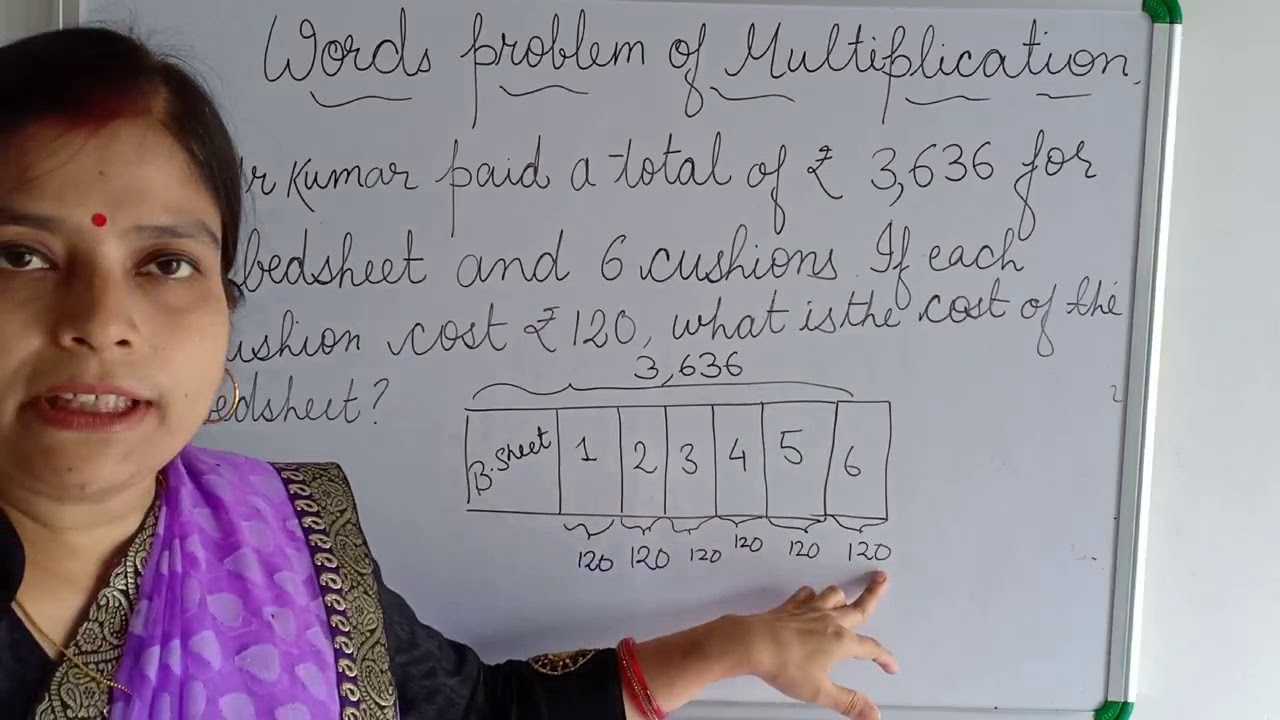 Words problem of Multiplication.
r Kumar paid a total of ₹ 3,636 for
bedsheet and 6 cushions. If each
ushion cost ₹ 120, what is the cost of the
edsheet?
3,636
B.Sheet 1 2 3 4 5 6
120 120 120 120 120 120